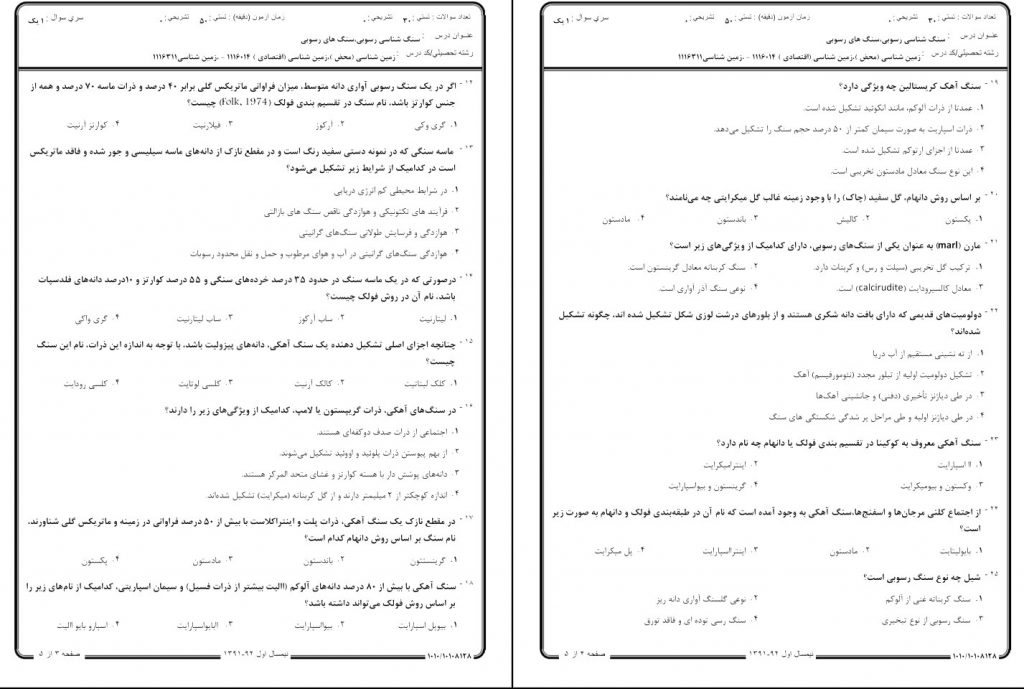 تعداد سوالات : تستی : ۳۰ تشریحی : ۰
زمان آزمون (دقیقه) : تستی : ۵۰ تشریحی : ۰
سری سوال : ۱ یک
عنوان درس : سنگ شناسی رسوبی،سنگ های رسوبی
رشته تحصیلی/کد درس : زمین شناسی (محض )،زمین شناسی (اقتصادی ) ۱۱۱۶۰۱۴ - ،زمین شناسی۱۱۱۶۳۱۱
۱۲- اگر در یک سنگ رسوبی آواری دانه متوسط، میزان فراوانی ماتریکس گلی برابر ۴۰ درصد و ذرات ماسه ۷۰ درصد و همه از
جنس کوارتز باشد، نام سنگ در تقسیم بندی فولک (Folk, 1974) چیست؟
۱. گری وکی ۲. آرکوز ۳. فیلارنیت ۴. کوارتز آرنیت
۱۳- ماسه سنگی که در نمونه دستی سفید رنگ است و در مقطع نازک از دانه‌های ماسه سیلیسی و جور شده و فاقد ماتریکس
است در کدامیک از شرایط زیر تشکیل می‌شود؟
۱. در شرایط محیطی کم انرژی دریایی
۲. فرآیند های تکتونیکی و هوازدگی ناقص سنگ های بازالتی
۳. هوازدگی و فرسایش طولانی سنگ‌های گرانیتی
۴. هوازدگی سنگ‌های گرانیتی در آب و هوای مرطوب و حمل و نقل محدود رسوبات
۱۴- درصورتی که در یک ماسه سنگ در حدود ۳۵ درصد خرده‌های سنگی و ۵۵ درصد کوارتز و ۱۰درصد دانه‌های فلدسپات
باشد، نام آن در روش فولک چیست؟
۱. لیتارنیت ۲. ساب آرکوز ۳. ساب لیتارنیت ۴. گری واکی
۱۵- چنانچه اجزای اصلی تشکیل دهنده یک سنگ آهکی، دانه‌های پیزولیت باشد، با توجه به اندازه این ذرات، نام این سنگ
چیست؟
۱. کلک لیتاتیت ۲. کالک آرنیت ۳. کلسی لوتایت ۴. کلسی رودایت
۱۶- در سنگ‌های آهکی، ذرات گریپستون یا لامپ، کدامیک از ویژگی‌های زیر را دارند؟
۱. اجتماعی از ذرات صدف دوکفه‌ای هستند.
۲. از بهم پیوستن ذرات پلوئید و اووئید تشکیل می‌شوند.
۳. دانه‌های پوشش دار با هسته کوارتز و غشای متحد المرکز هستند.
۴. اندازه کوچکتر از ۲ میلیمتر دارند و از گل کربناته (میکرایت) تشکیل شده‌اند.
۱۷- در مقطع نازک یک سنگ آهکی، ذرات پلت و اینتراکلاست با بیش از ۵۰ درصد فراوانی در زمینه و ماتریکس گلی شناورند،
نام سنگ بر اساس روش دانهام کدام است؟
۱. گرینستئون ۲. باندستون ۳. مادستون ۴. پکستون
۱۸- سنگ آهکی با بیش از ۸۰ درصد دانه‌های آلوکم (االیت بیشتر از ذرات فسیل) و سیمان اسپاریتی، کدامیک از نام‌های زیر را
بر اساس روش فولک می‌تواند داشته باشد؟
۱. بیوپل اسپارایت ۲. بیوااسپارایت ۳. االبایواسپارایت ۴. اسپارو بایو االیت
۱۰۱۰/۱۰۱۰۸۱۲۸
نیمسال اول ۹۲-۱۳۹۱
صفحه ۳ از ۵
تعداد سوالات : تستی : ۳۰ تشریحی : ۰
زمان آزمون (دقیقه) : تستی : ۵۰ تشریحی : ۰
سری سوال : ۱ یک
عنوان درس : سنگ شناسی رسوبی،سنگ های رسوبی
رشته تحصیلی/کد درس : زمین شناسی (محض )،زمین شناسی (اقتصادی ) ۱۱۱۶۰۱۴ - ،زمین شناسی۱۱۱۶۳۱۱
۱۹- سنگ آهک کریستالین چه ویژگی دارد؟
۱. عمدتا از ذرات آلوکم، مانند انکوئید تشکیل شده است.
۲. ذرات اسپاریت به صورت سیمان کمتر از ۵۰ درصد حجم سنگ را تشکیل می‌دهد.
۳. عمدتا از اجزای ارتوکم تشکیل شده است.
۴. این نوع سنگ معادل مادستون تخریبی است.
۲۰- بر اساس روش دانهام، گل سفید (چاک) را با وجود زمینه غالب گل میکرایتی چه می‌نامند؟
۱. پکستون ۲. کالیش ۳. باندستون ۴. مادستون
۲۱- مارن (marl) به عنوان یکی از سنگ‌های رسوبی، دارای کدامیک از ویژگی‌های زیر است؟
۱. ترکیب گل تخریبی (سیلت و رس) و کربنات دارد. ۲. سنگ کربناته معادل گرینستون است.
۳. معادل کالسیرودایت (calcirudite) است. ۴. نوعی سنگ آذر آواری است.
۲۲- دولومیت‌های قدیمی که دارای بافت دانه شکری هستند و از بلورهای درشت لوزی شکل تشکیل شده اند، چگونه تشکیل
شده‌اند؟
۱. از ته نشینی مستقیم از آب دریا
۲. تشکیل دولومیت اولیه از تبلور مجدد (نئومورفیسم) آهک
۳. در طی دیاژنز تأخیری (دفنی) و جانشینی آهک‌ها
۴. در طی دیاژنز اولیه و طی مراحل پر شدگی شکستگی های سنگ
۲۳- سنگ آهکی معروف به کوکینا در تقسیم بندی فولک یا دانهام چه نام دارد؟
۱. اا اسپارایت ۲. اینترامیکرایت
۳. وکستون و بیومیکرایت ۴. گرینستون و بیواسپارایت
۲۴- از اجتماع کلنی مرجان‌ها و اسفنج‌ها،سنگ آهکی به وجود آمده است که نام آن در طبقه‌بندی فولک و دانهام به صورت زیر
است؟
۱. بایولیتایت ۲. مادستون ۳. اینترااسپارایت ۴. پل میکرایت
۲۵- شیل چه نوع سنگ رسوبی است؟
۱. سنگ کربناته غنی از آلوکم ۲. نوعی گلسنگ آواری دانه ریز
۳. سنگ رسوبی از نوع تبخیری ۴. سنگ رسی توده ای و فاقد تورق
۱۰۱۰/۱۰۱۰۸۱۲۸
نیمسال اول ۹۲-۱۳۹۱
صفحه ۴ از ۵